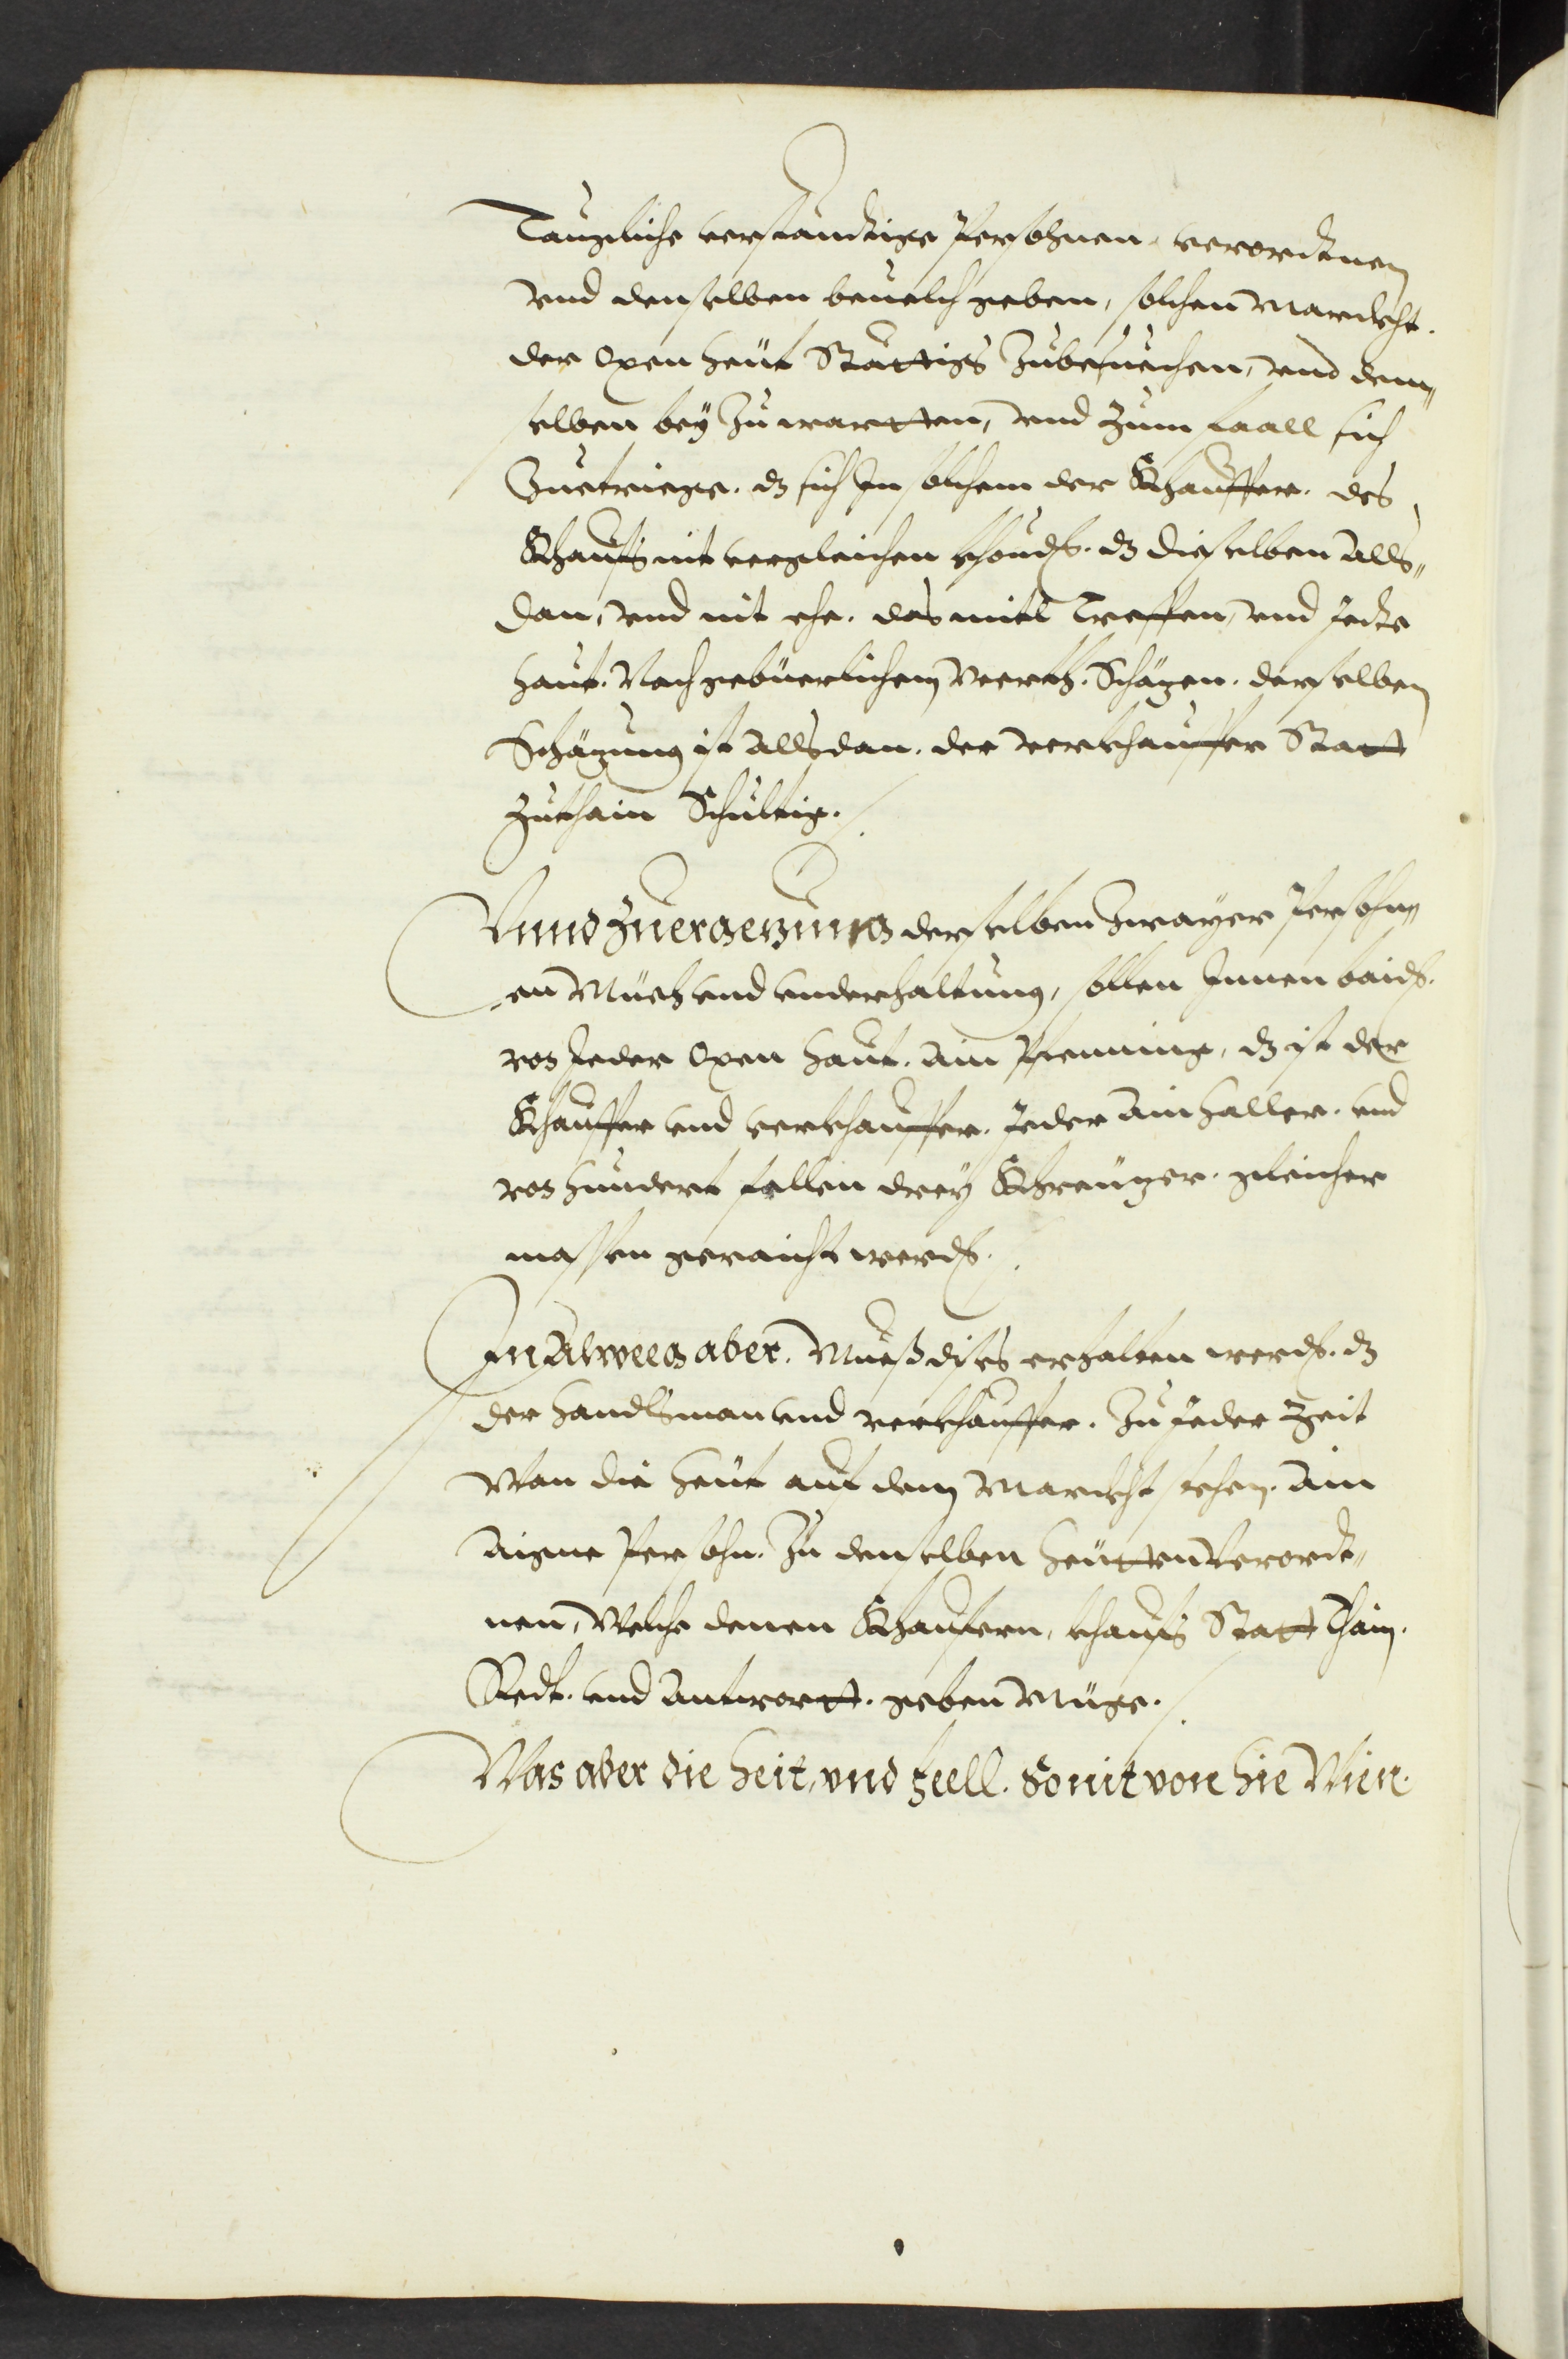 Taugliche verständtige Persohnen, verordtnen
vnd denselben beuelch geben, solchen Marckht.
der Oxen heüt Stättigs Zubesuechen, vnd dem„
selben bey Zu wartten, vnd Zum faall sich
Zuetriege. dz sich In solchem der Khauffer. des
Khaufs nit vergleichen khondt. dz dieselben Alls„
dan, vnd nit ehe. das mitl Treffen, vnd Jedte
haut. Nach gebüerlichem Werth. Schäzen. derselben
Schäzung ist Allsdan. der verkhauffer Statt
Zuthain Schultig.
Vnnd Zuergezung derselben Zwayer Persohn„
en Müeh vnd vnderhaltung, sollen Innen baidt.
von Jeder Oxen haut. Ain Pfenning, dz ist der
Khauffer vnd verkhauffer. Jeder Ain haller. vnd
von hundert fellen drey Khreüzer. gleicher
massen geraicht werdt.
In Alweeg aber. Mueß dises erhalten werdt. dz
der handlsman vnd verkhauffer. Zu Jeder Zeit
Wan die heüt auf dem Marckht stehen. Ain
Aigne Persohn. Zu denselben heütten Verordt„
nen, Welche denen Khaufern, khaufs Statt Thain.
Redt. vnd Antwortt. geben Müge.
Was aber die heit, vnd feell. So nit von hie Wien.